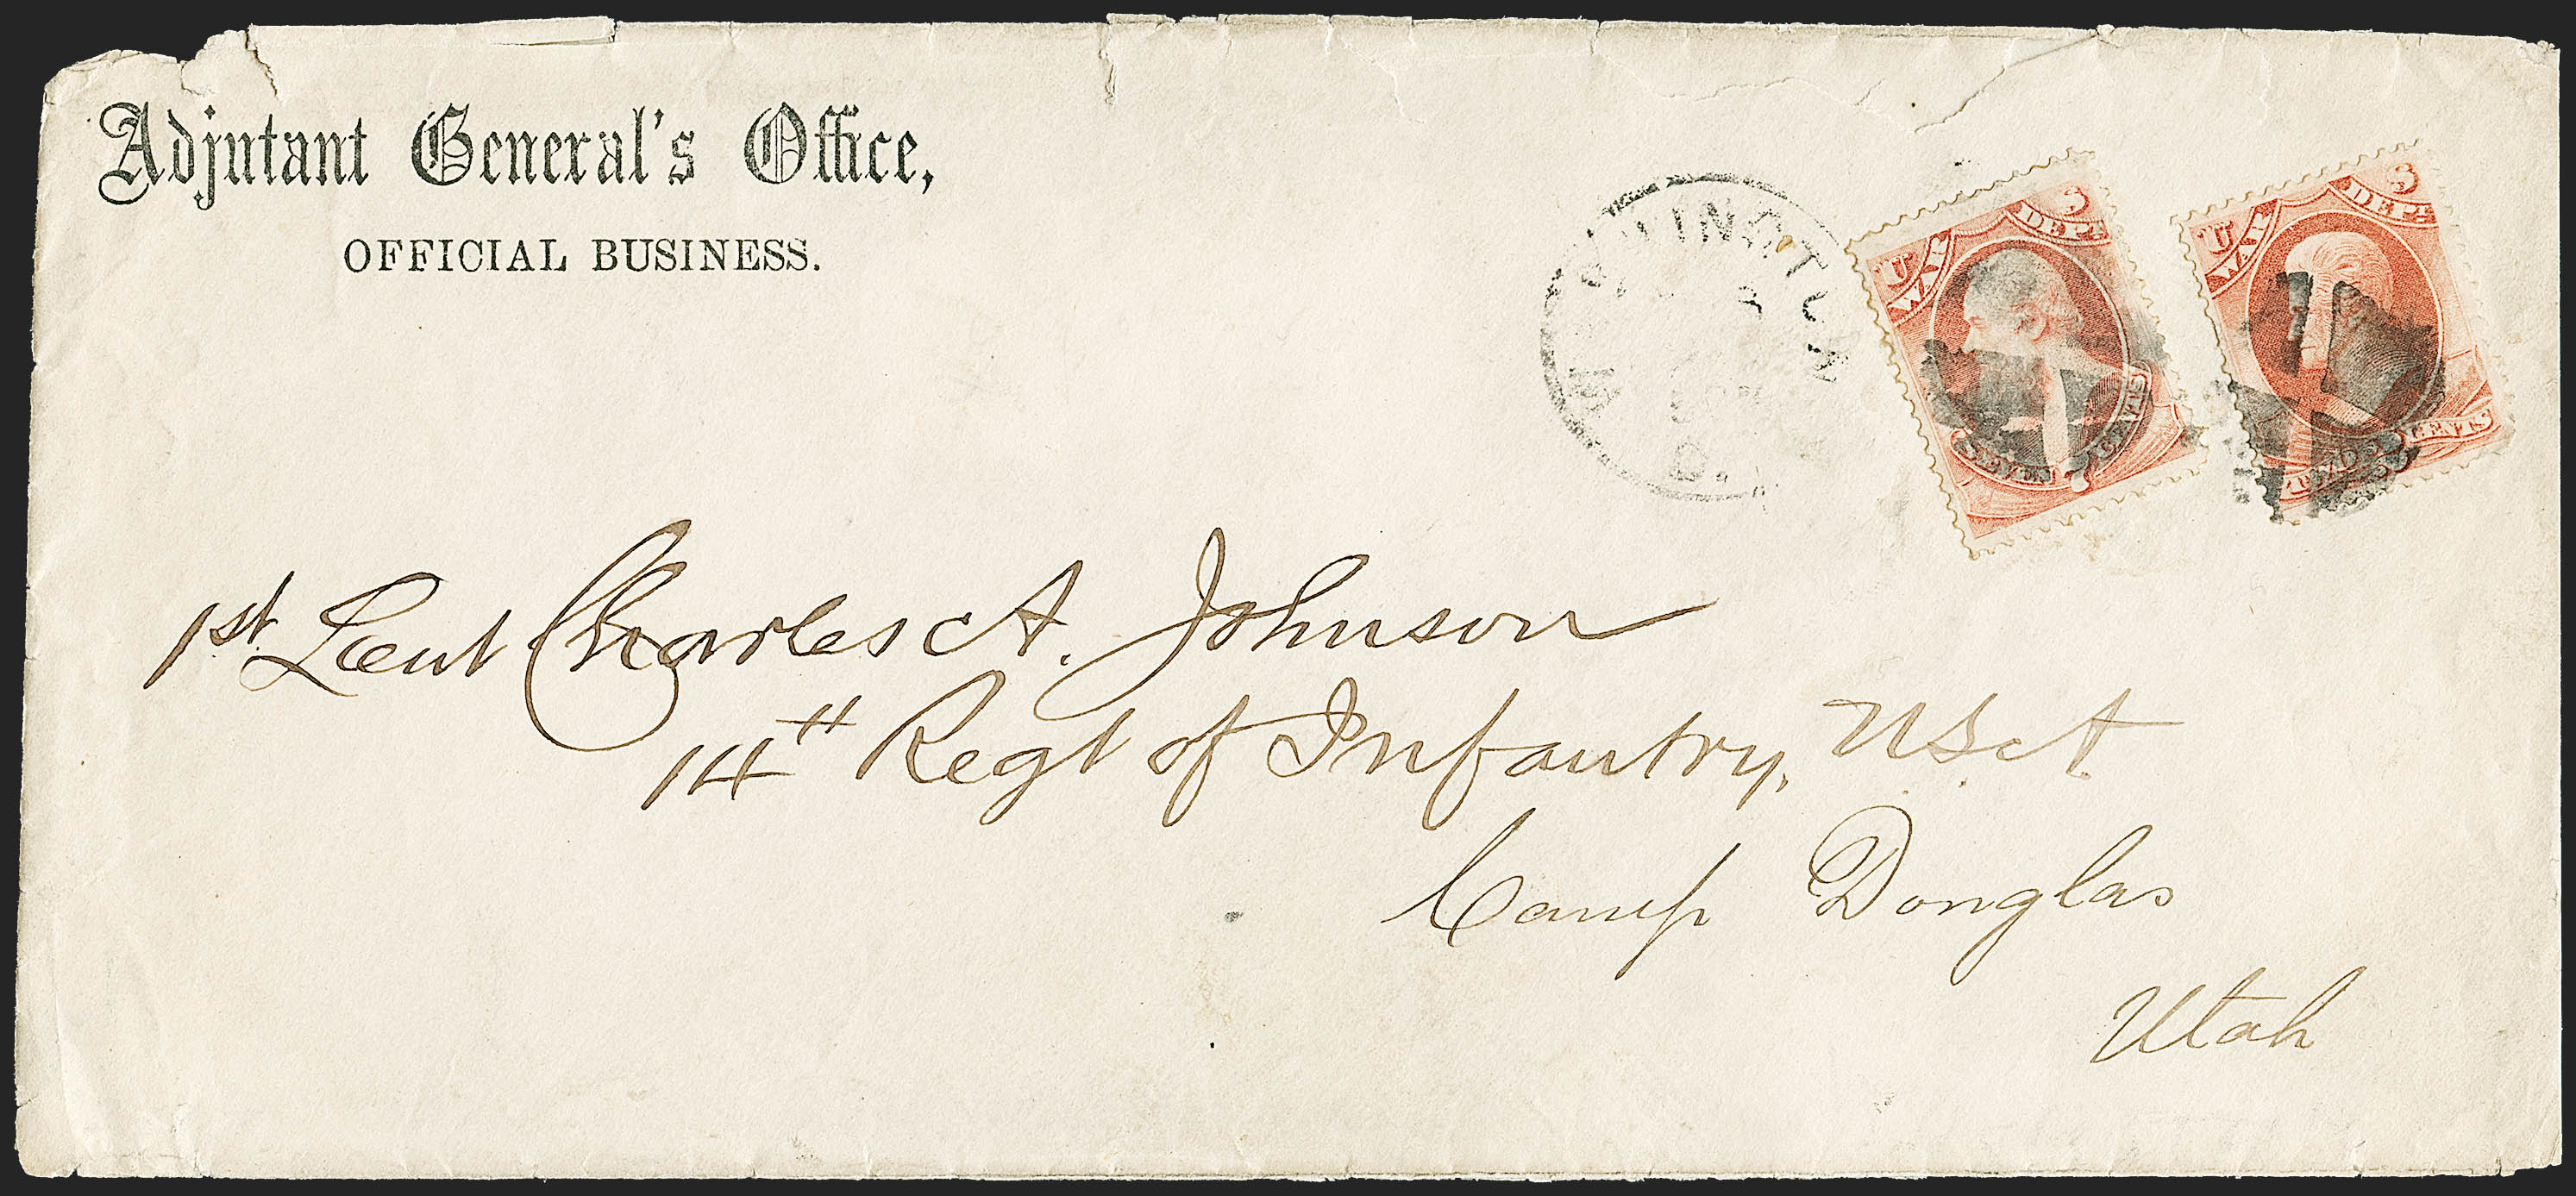 Adjutant General's Office,
OFFICIAL BUSINESS.
WASHINGTON
D.
U S
WAR DEPT
SEVEN 7 CENTS
U S
WAR DEPT
TWO CENTS
1st. Lieut Charles A. Johnson
14th Regt of Infantry, U.S.A.
Camp Douglas
Utah